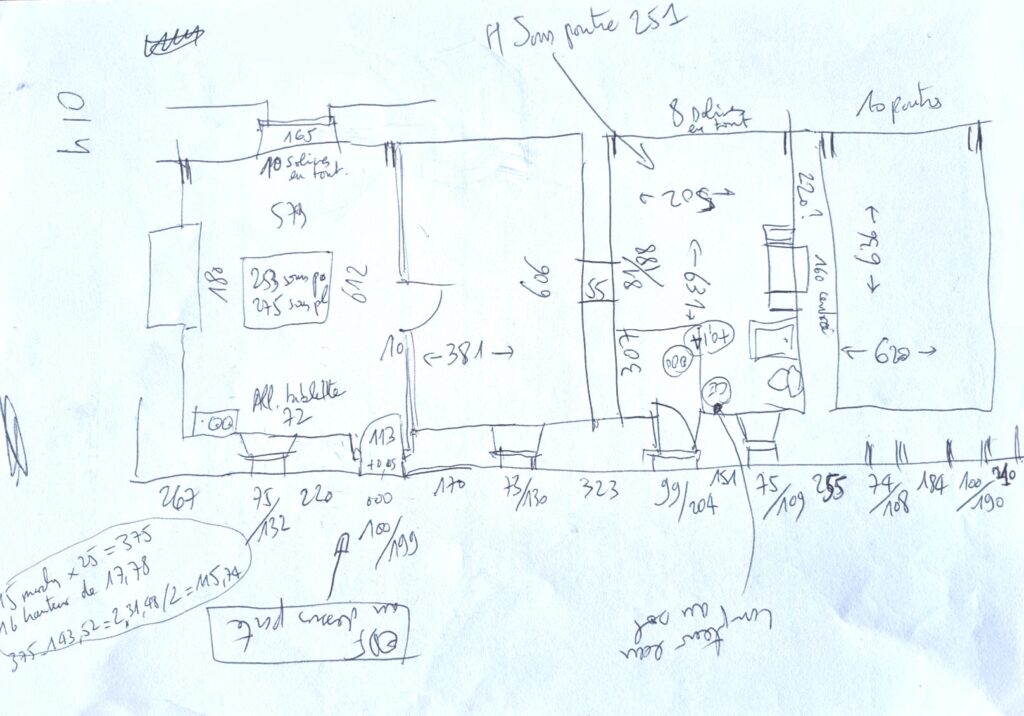 H Sous poutre 251
8 solives
en tout
10 poutres
165
10 solives
en tout.
579
180
253 sous po
275 sous pl
612
All. tablette
72
10
←381→
609
55
502
88/18
←631→
307
+0,14
000
CE
220?
160 centrée
←639→
←620→
113
+0,05
000
267
75/132
220
100/199
170
73/130
323
99/204
151
75/109
255
74/108
184
100/190
210
15 marches × 25 = 375
16 hauteur de 17,78
375-143,52=2,31,48/2=115,74
EDF
au dessus porte
compteur eau
au sol